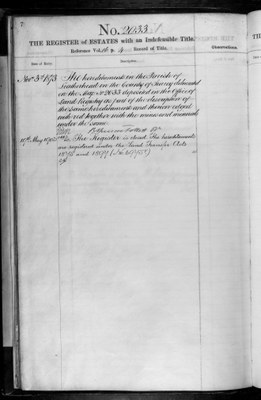 7.
No. 2033
THE REGISTER of ESTATES with an Indefeasible Title.
Reference Vol. p. Record of Title.
Date of Entry.
Description.
Observations.
Novr 3rd 1873
The hereditaments in the Parish of
Leatherhead in the County of Surrey delineated
on the Map No 2033 deposited in the Office of
Land Registry as part of the description of
the same hereditaments and thereon edged
red together with the mines and minerals
under the same.
10th May 1905
The Register is closed. The hereditaments
are registered under the Land Transfer Acts
1875 and 1897